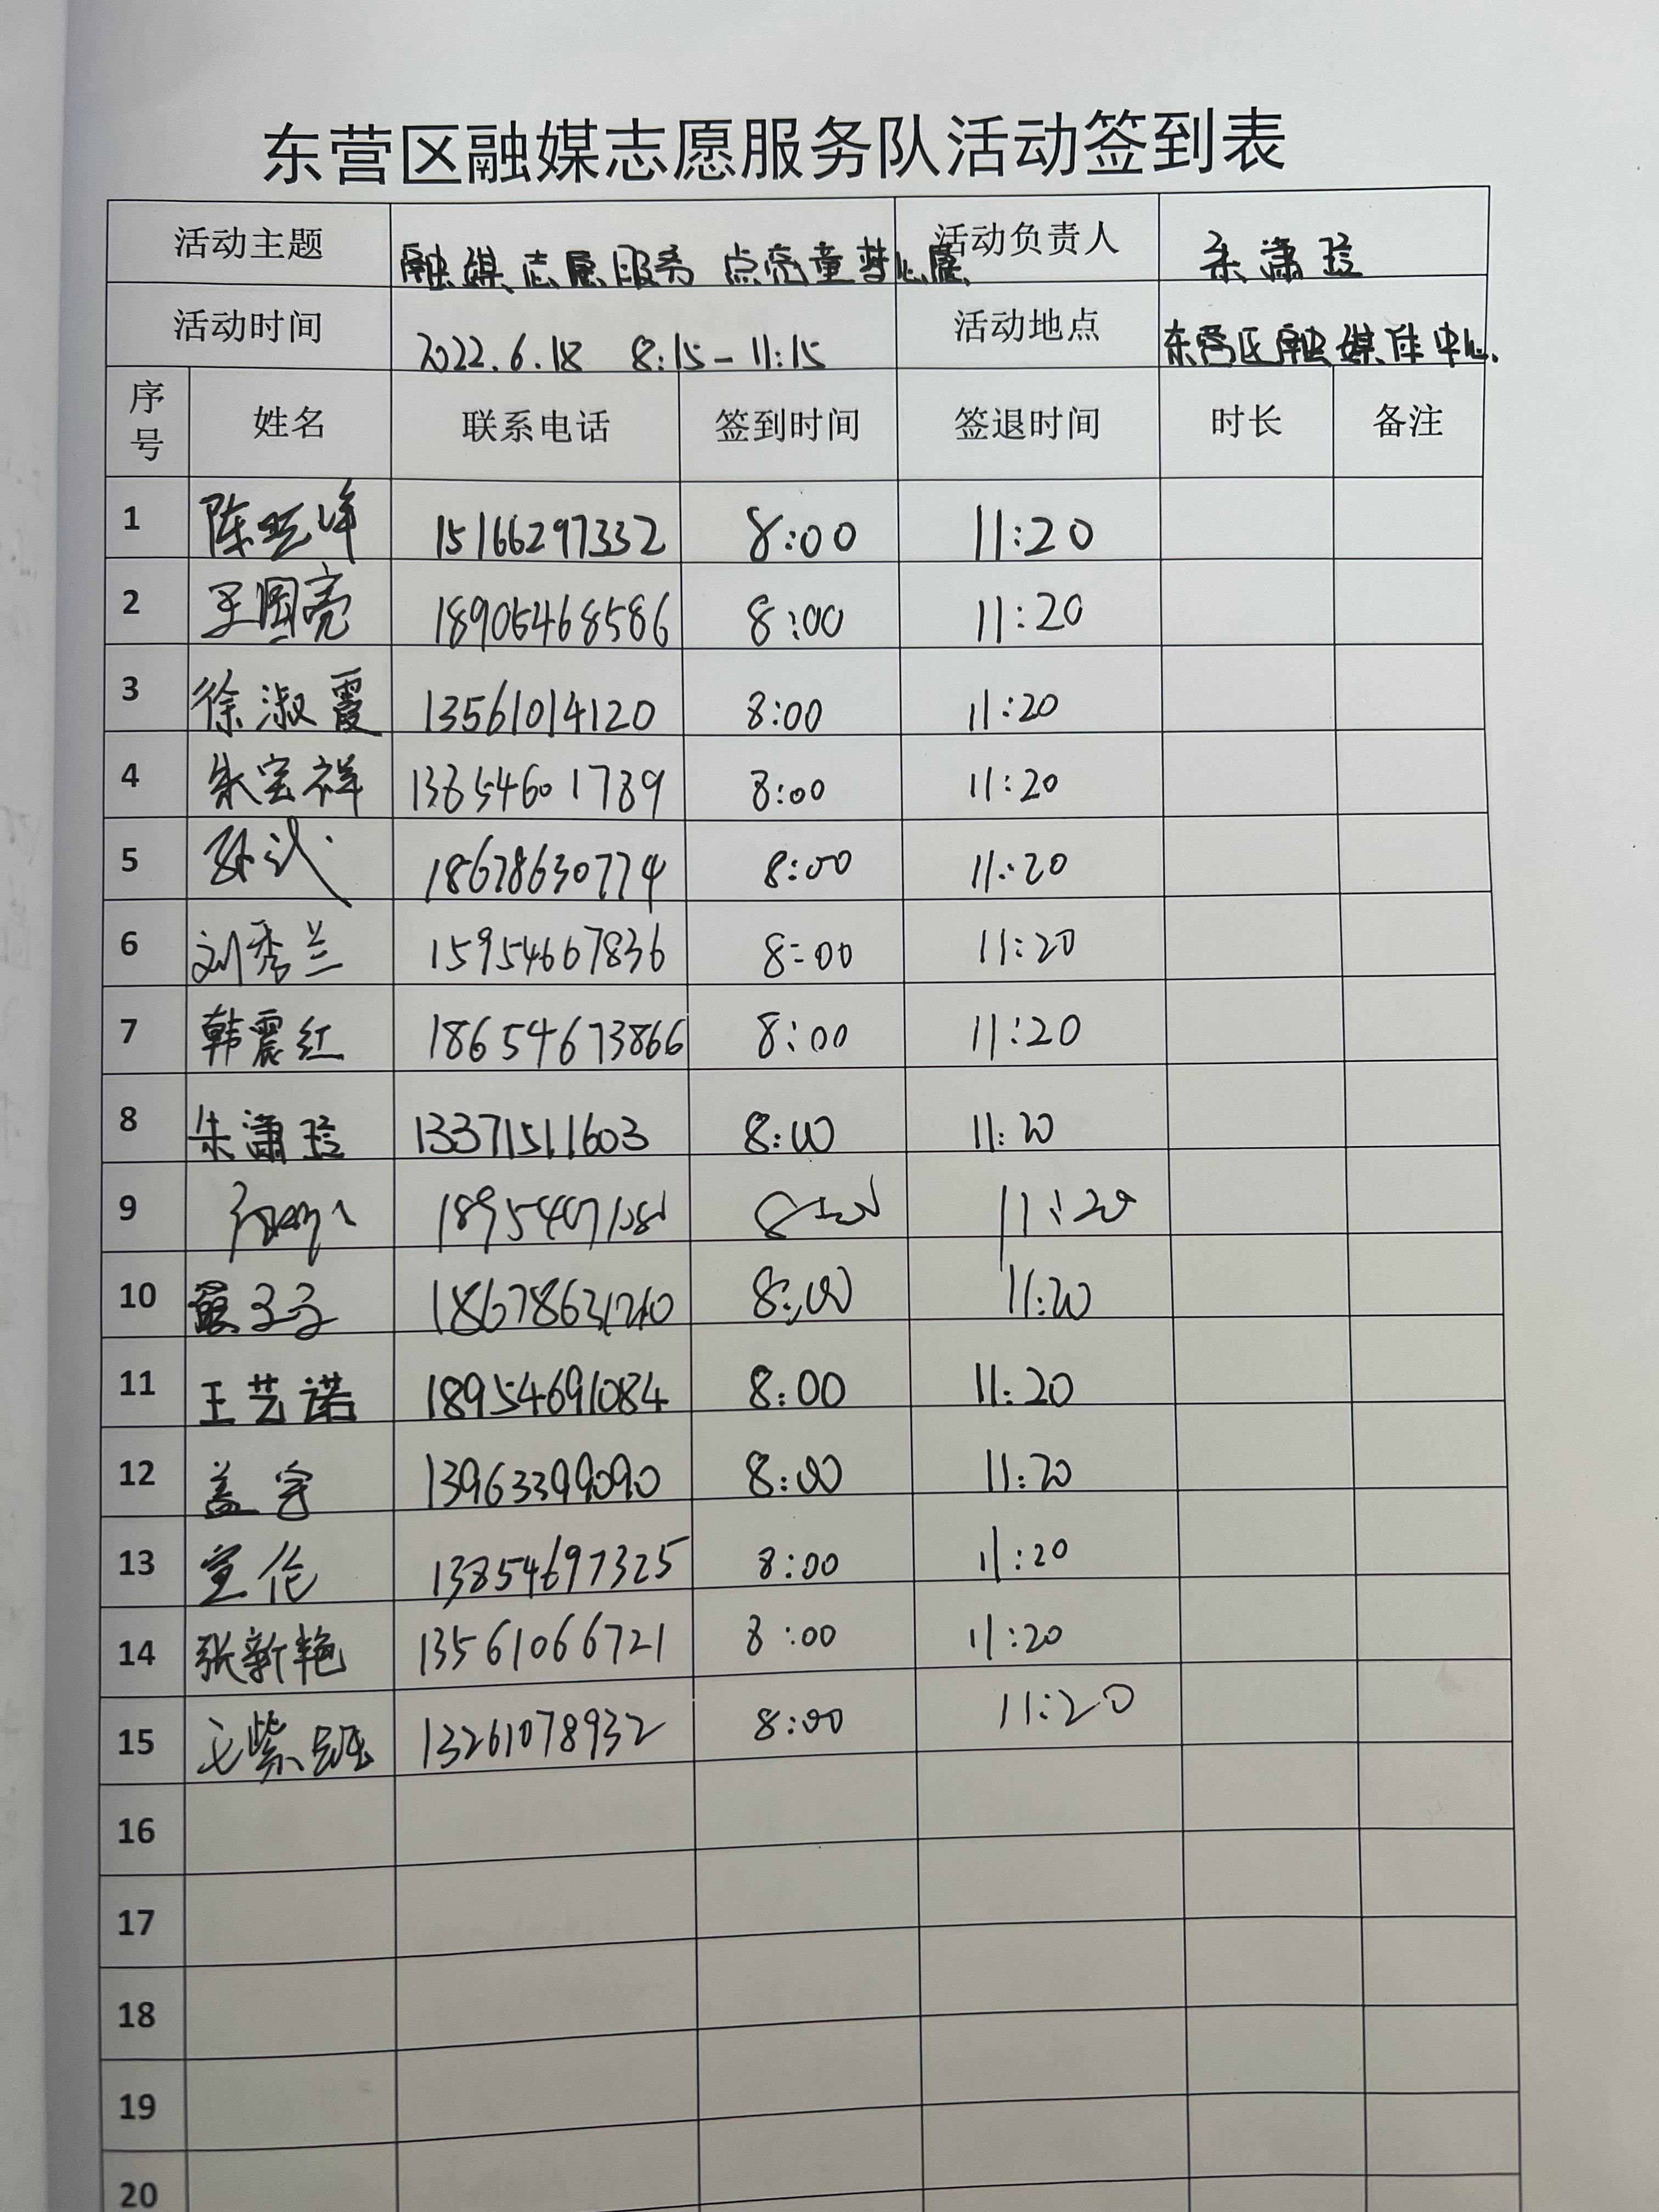 东营区融媒志愿服务队活动签到表
活动主题 融媒志愿服务 点亮童梦心愿 活动负责人 朱潇琼
活动时间 2022.6.18 8:15-11:15 活动地点 东营区融媒体中心
序号 姓名 联系电话 签到时间 签退时间 时长 备注
1 15166297332 8:00 11:20
2 王国亮 18905468586 8:00 11:20
3 徐淑霞 13561014120 8:00 11:20
4 朱宝祥 13854601789 8:00 11:20
5 18678630774 8:00 11:20
6 刘秀兰 15954667836 8:00 11:20
7 韩震红 18654673866 8:00 11:20
8 朱潇琼 13371511603 8:00 11:20
9 8:00 11:20
10 8:00 11:20
11 王艺诺 18954691084 8:00 11:20
12 盖宇 13963399090 8:00 11:20
13 宣伦 13854697325 8:00 11:20
14 张新艳 13561066721 8:00 11:20
15 13261078932 8:00 11:20
16
17
18
19
20